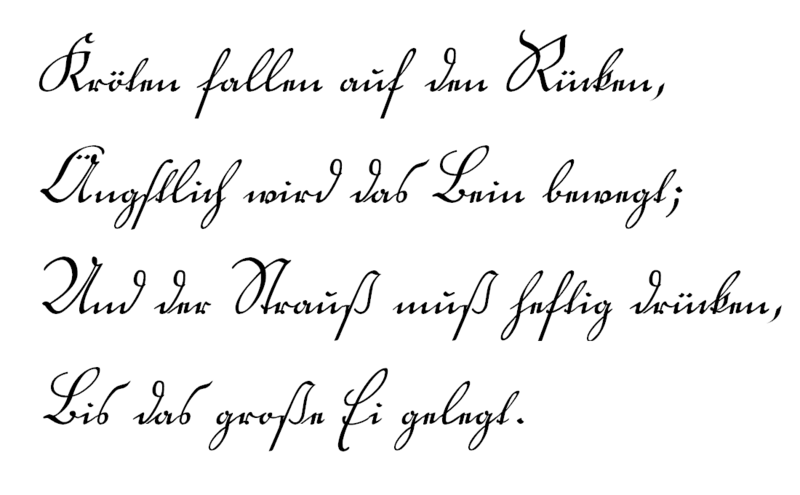 Kröten fallen auf den Rücken,
Ängstlich wird das Bein bewegt;
Und der Strauß muß heftig drücken,
Bis das große Ei gelegt.